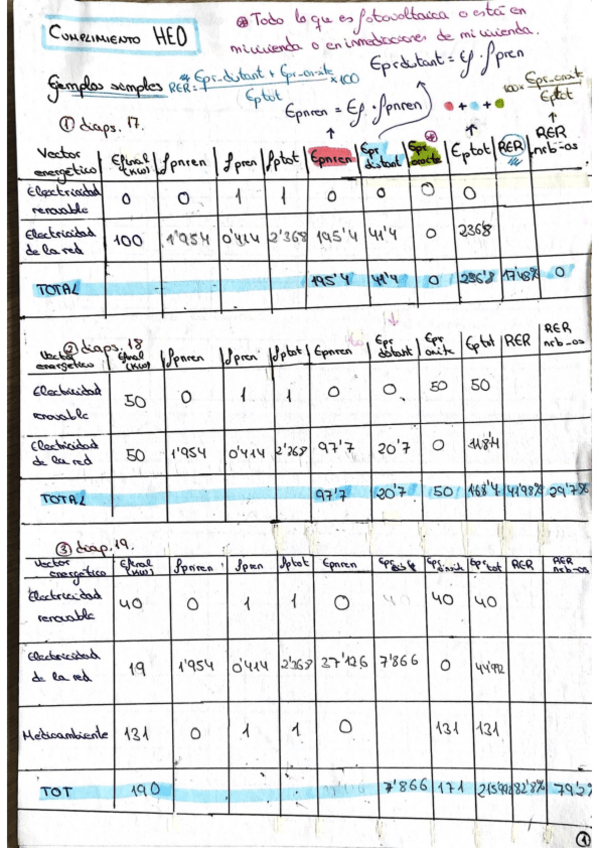 CUMPLIMIENTO HE0
⊛ Todo lo que es fotovoltaica o está en
mi vivienda o en inmediaciones de mi vivienda.
Ejemplos simples
RER = (Epr-distant + Epr-onsite / Eptot) × 100
Eprdistant = Ef · fpren
Epnren = Ef · fpnren
100 × Epr-onsite / Eptot
① diaps. 17.
Vector energético | Efinal (kW) | fpnren | fpren | fptot | Epnren | Epr distant | Epr onsite | Eptot | RER | RER nrb-os
Electricidad renovable | 0 | 0 | 1 | 1 | 0 | 0 | 0 | 0
Electricidad de la red | 100 | 1'954 | 0'414 | 2'368 | 195'4 | 41'4 | 0 | 236'8
TOTAL | 195'4 | 41'4 | 0 | 236'8 | 17'48% | 0
② diaps. 18
Vector energético | Efinal (kW) | fpnren | fpren | fptot | Epnren | Epr distant | Epr onsite | Eptot | RER | RER nrb-os
Electricidad renovable | 50 | 0 | 1 | 1 | 0 | 0 | 50 | 50
Electricidad de la red | 50 | 1'954 | 0'414 | 2'368 | 97'7 | 20'7 | 0 | 118'4
TOTAL | 97'7 | 20'7 | 50 | 168'4 | 41'98% | 29'7%
③ diap. 19.
Vector energético | Efinal (kW) | fpnren | fpren | fptot | Epnren | Epr dist | Epr onsite | Eptot | RER | RER nrb-os
Electricidad renovable | 40 | 0 | 1 | 1 | 0 | 40 | 40
Electricidad de la red | 19 | 1'954 | 0'414 | 2'368 | 37'126 | 7'866 | 0 | 44'992
Medioambiente | 131 | 0 | 1 | 1 | 0 | 131 | 131
TOT | 190 | 7'866 | 171 | 215'992 | 82'8%
1